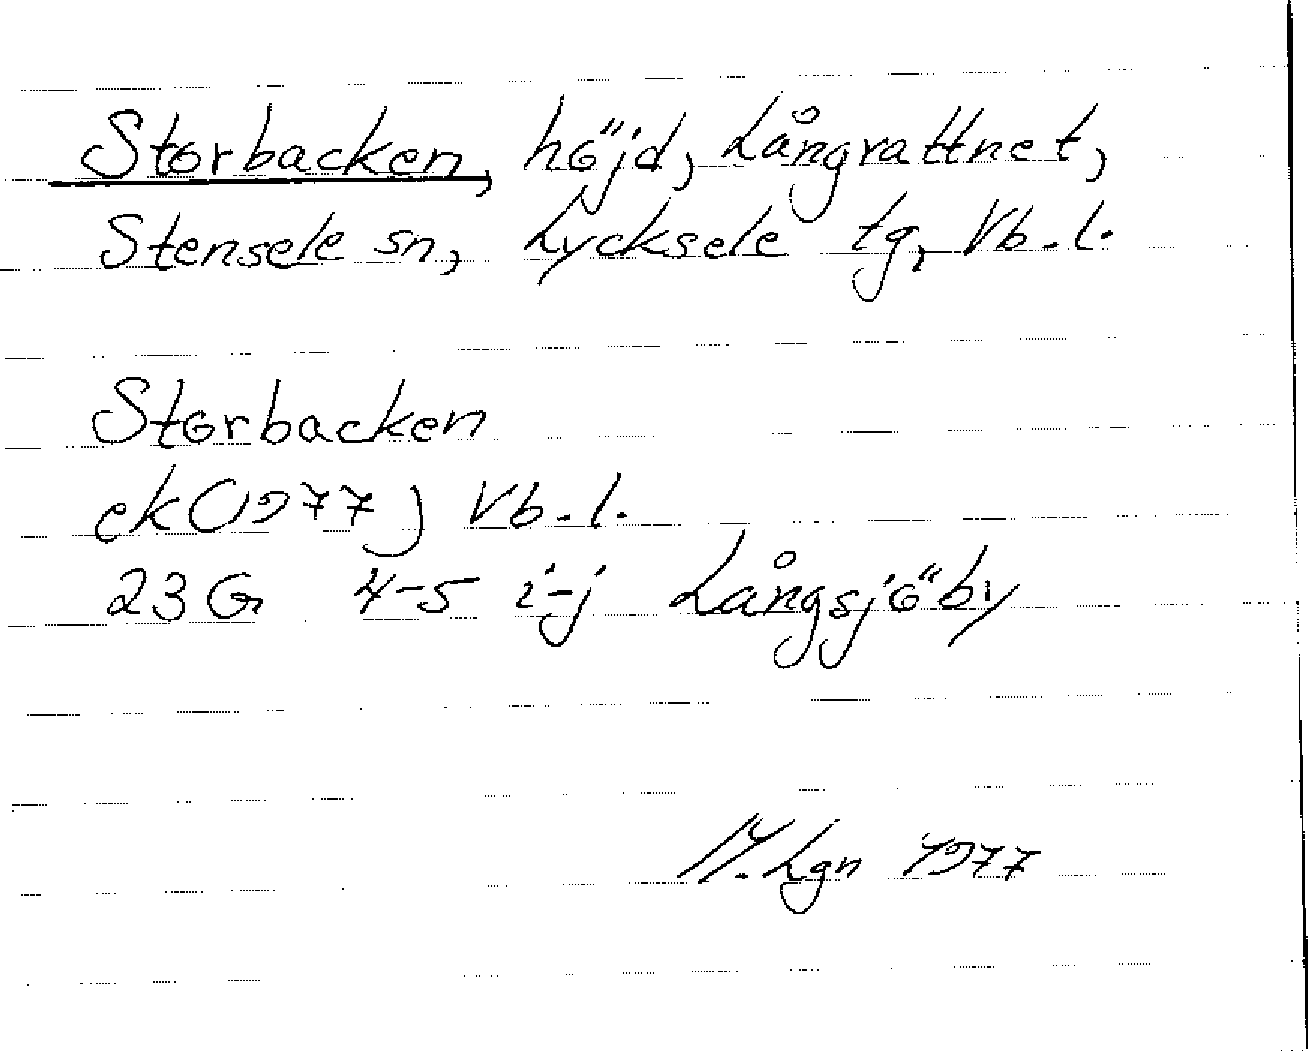 Storbacken, höjd, Långvattnet,
Stensele sn, Lycksele tg, Vb.l.
Storbacken
ek (1977) Vb.l.
23 G 4-5 i-j Långsjöby
M. Lgn 1977